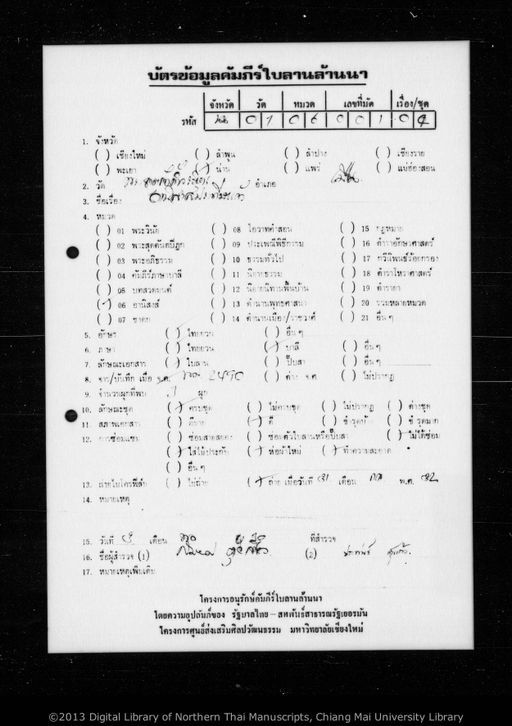 บัตรข้อมูลคัมภีร์ใบลานล้านนา
จังหวัด วัด หมวด เลขที่มัด เรื่อง/ชุด
รหัส นน 01 06 001 04
1. จังหวัด
( ) เชียงใหม่ ( ) ลำพูน ( ) ลำปาง ( ) เชียงราย
( ) พะเยา (/) น่าน ( ) แพร่ ( ) แม่ฮ่องสอน
2. วัด อำเภอ เมือง
3. ชื่อเรื่อง
4. หมวด
( ) 01 พระวินัย ( ) 08 โอวาทคำสอน ( ) 15 กฎหมาย
( ) 02 พระสุตตันตปิฎก ( ) 09 ประเพณีพิธีกรรม ( ) 16 ตำราอักษรศาสตร์
( ) 03 พระอภิธรรม ( ) 10 ธรรมทั่วไป ( ) 17 กวีนิพนธ์ร้อยกรอง
( ) 04 คัมภีร์ภาษาบาลี ( ) 11 นิยายธรรม ( ) 18 ตำราโหราศาสตร์
( ) 05 บทสวดมนต์ ( ) 12 นิยายนิทานพื้นบ้าน ( ) 19 ตำรายา
(/) 06 อานิสงส์ ( ) 13 ตำนานพุทธศาสนา ( ) 20 รวมหลายหมวด
( ) 07 ชาดก ( ) 14 ตำนานเมือง/ราชวงศ์ ( ) 21 อื่น ๆ
5. อักษร ( ) ไทยยวน ( ) อื่น ๆ
6. ภาษา ( ) ไทยยวน (/) บาลี ( ) อื่น ๆ
7. ลักษณะเอกสาร (/) ใบลาน ( ) ปั๊บสา ( ) อื่น ๆ
8. จาร/บันทึก เมื่อ พ.ศ. 2490 ( ) ( ) ไม่ปรากฏ
9. จำนวนผูกที่พบ 1 ผูก
10. ลักษณะชุด (/) ครบชุด ( ) ไม่ครบชุด ( ) ไม่ปรากฏ ( ) ต่างชุด
11. สภาพเอกสาร ( ) ดีมาก (/) ดี ( ) ชำรุด ( ) ชำรุดมาก
12. การซ่อมแซม ( ) ซ่อมสายสนอง ( ) ซ่อมตัวใบลานหรือปั๊บสา (/) ไม่ได้ซ่อม
(/) ใส่ไม้ประกับ (/) ห่อผ้าใหม่ (/) ทำความสะอาด
( ) อื่น ๆ
13. ถ่ายไมโครฟิล์ม ( ) ไม่ถ่าย (/) ถ่าย เมื่อวันที่ 31 เดือน พ.ศ. 32
14. หมายเหตุ
15. วันที่ เดือน ที่สำรวจ
16. ชื่อผู้สำรวจ (1) (2)
17. หมายเหตุเพิ่มเติม
โครงการอนุรักษ์คัมภีร์ใบลานล้านนา
โดยความอุปถัมภ์ของ รัฐบาลไทย - สหพันธ์สาธารณรัฐเยอรมัน
โครงการศูนย์ส่งเสริมศิลปวัฒนธรรม มหาวิทยาลัยเชียงใหม่
©2013 Digital Library of Northern Thai Manuscripts, Chiang Mai University Library